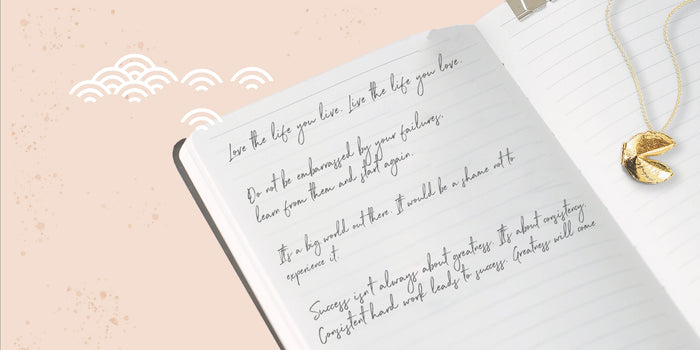 Love the life you live. Live the life you love.
Do not be embarrassed by your failures,
learn from them and start again.
It's a big world out there. It would be a shame not to
experience it.
Success isn't always about greatness. It's about consistency.
Consistent hard work leads to success. Greatness will come